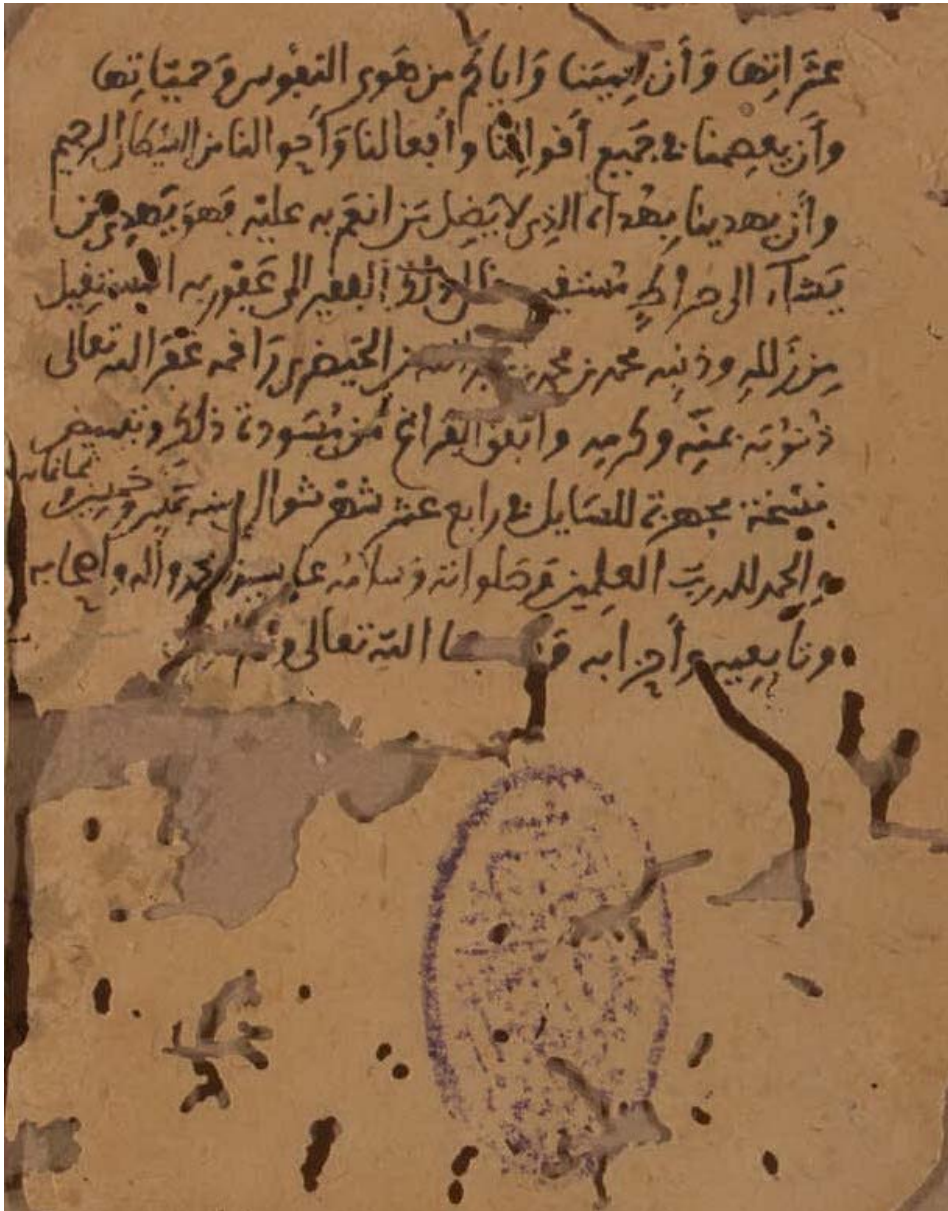 عثراتها وَأن يقينا وَإياكم من هوَى النفوس وَحميّاتها
وأن يعصمنا في جَميع أقوالنا وأفعالنا وَأحوالنا من الشيطان الرجيم
وأن يهدينا بِهُداه الذِي لا يَضِل مَن انعَم به عليْه فهوَ يَهدِي من
يَشآء الى صراطٍ مُستقيم قال ذلك الفقير الى عَفو ربه المستقيل
مِن زَلَلِهِ وذنبِه محمد بن محمد بن عبد الله بن الخيضرِي رَاقمه غفرَ الله تعالى
ذنُوبَه بمنّه وكرمِه واتفق الفراغ من مُسَودة ذلك وتبييض
نسْخة مجهزة للسَايل في رابع عشر شهْر شوال سنه وخمسين ثمانمائه
والحمد لله ربّ العلمِين وَصَلواته وسَلامُه على سيدنا محمد واله واصحابه
وتابِعِيه وأحزابه الله تعالى